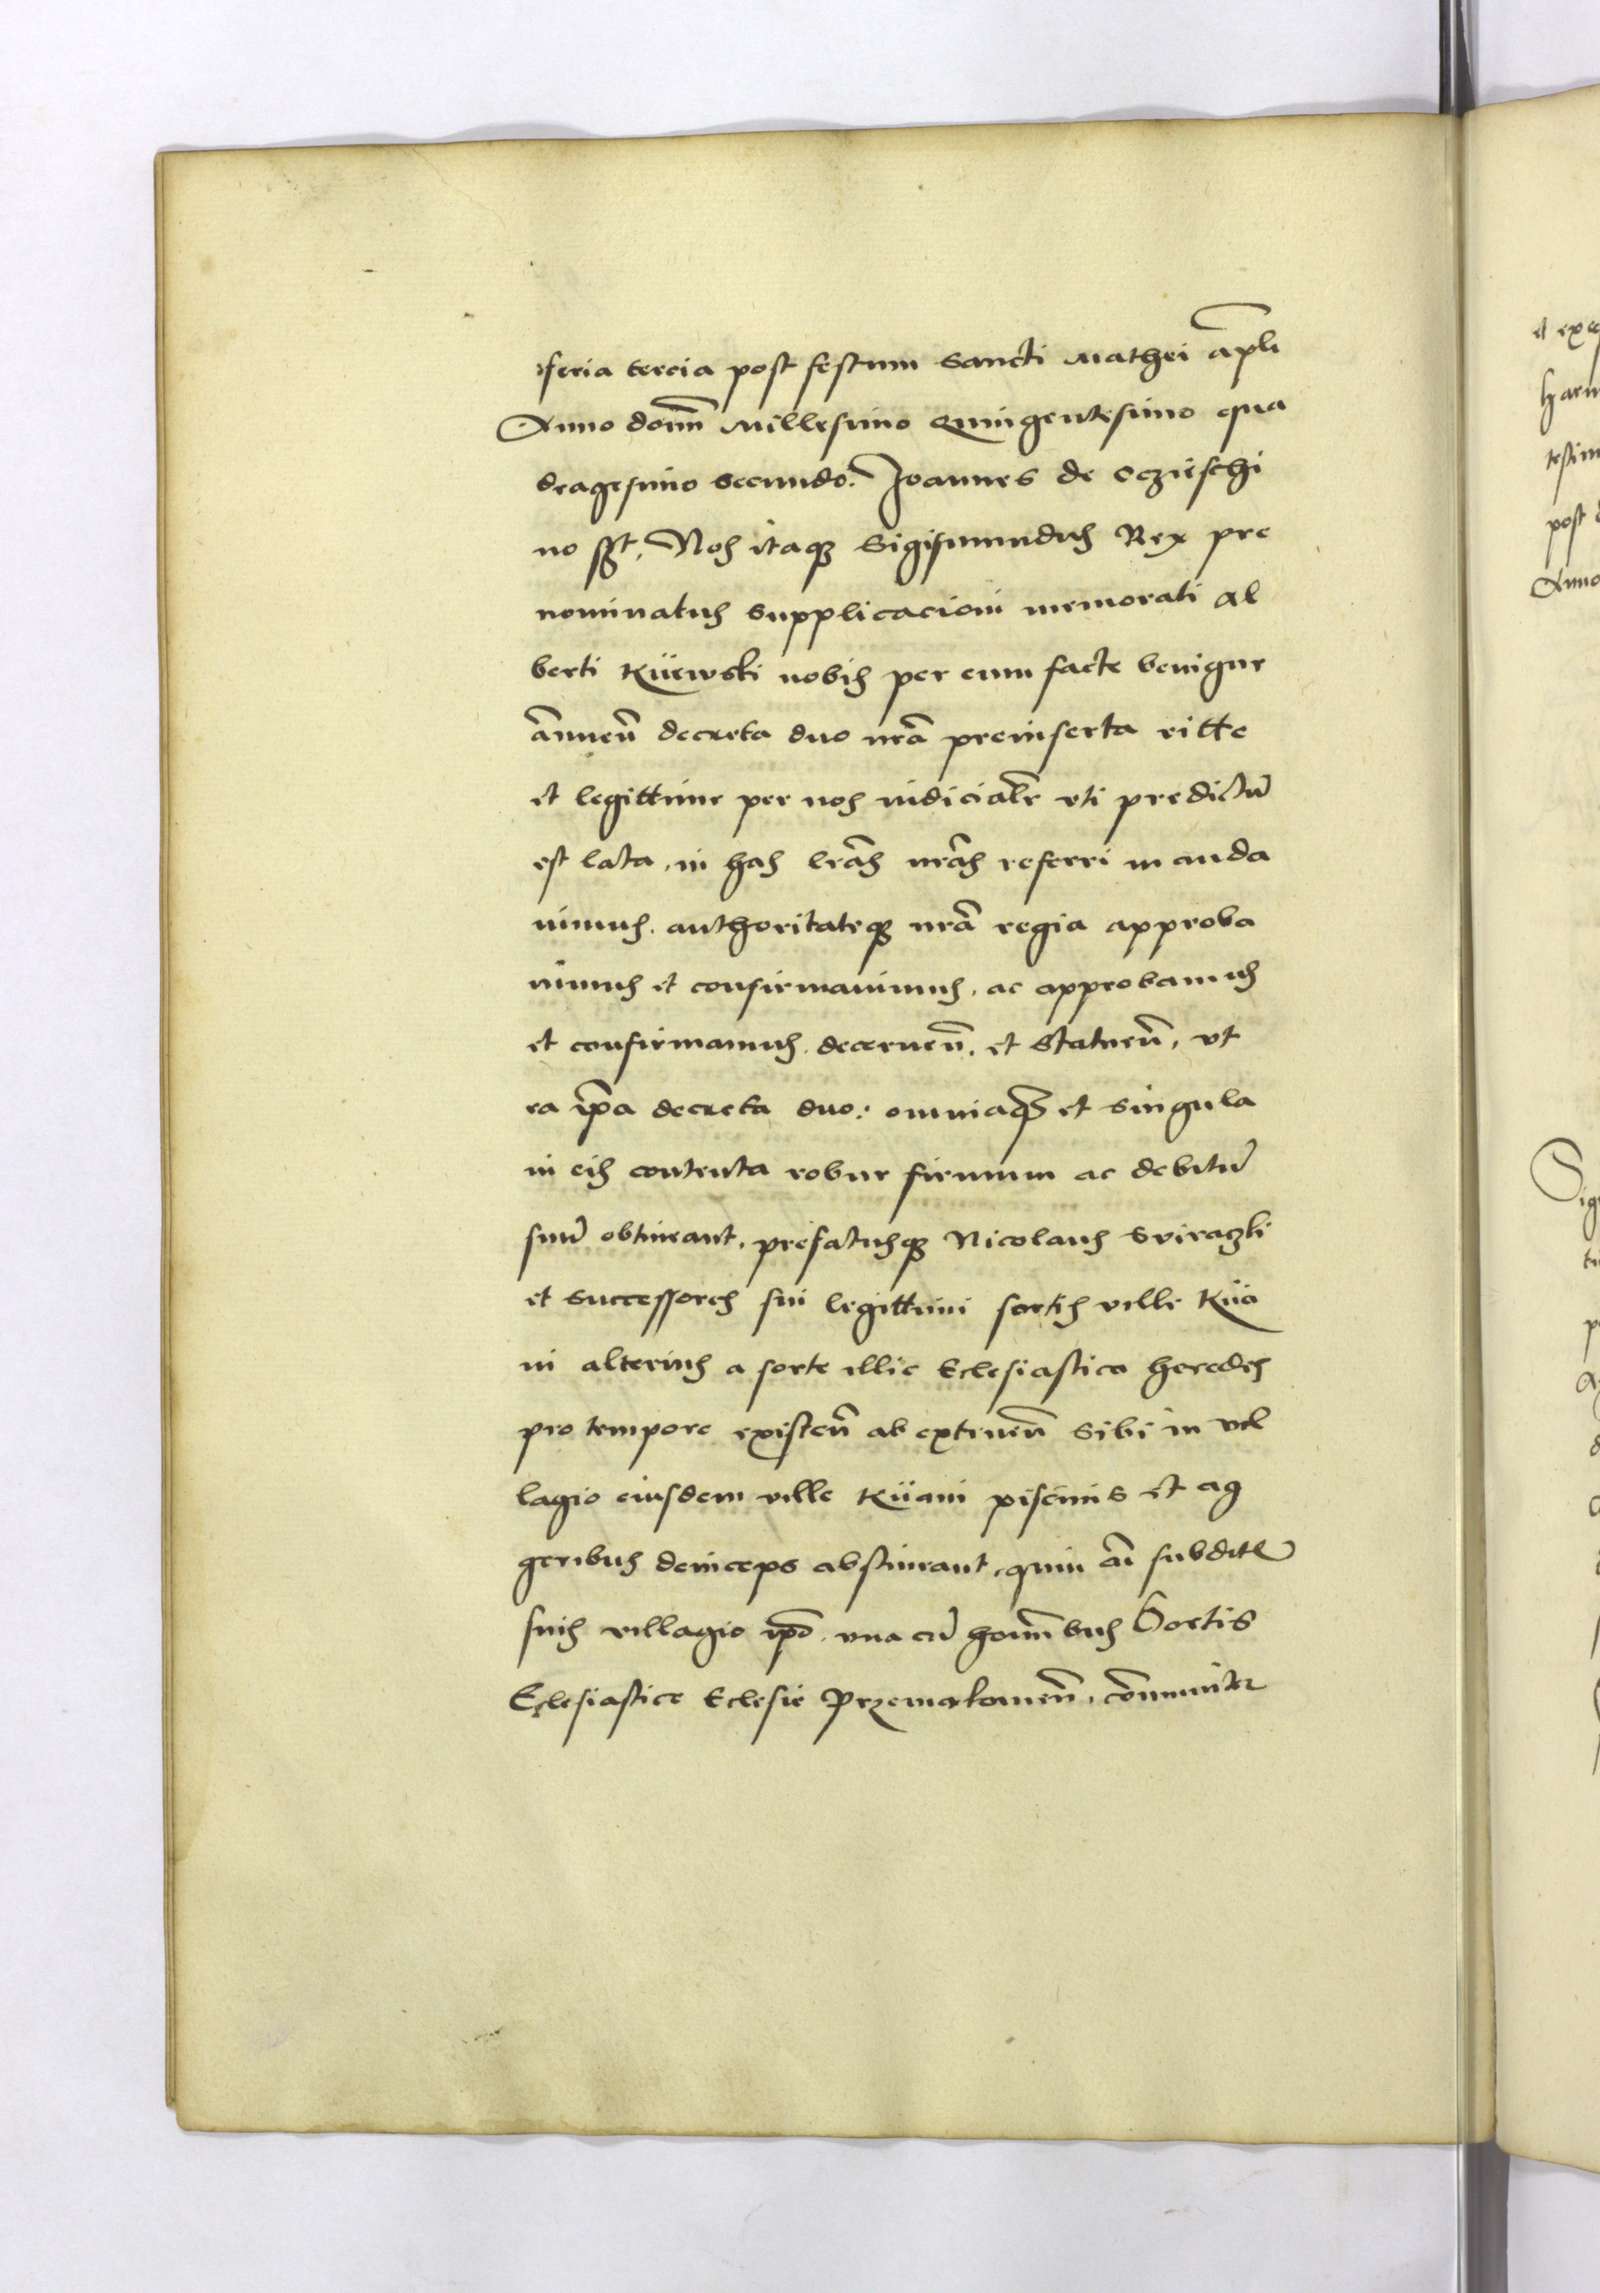 feria tercia post festum Sancti Mathei apli
Anno domi Millesimo Quingentesimo qua
dragesimo secundo. Joannes de Oczieschi
no sst. Nos itaq Sigismundus Rex pre
nominatus supplicacioni memorati Al
berti Küewski nobis per eum facte benigne
annuen decreta duo nra preinserta ritte
et legittime per nos iudicialr uti predictu
est lata, in has lras nras referri manda
uimus. authoritateq nra regia approba
uimus et confirmauimus. ac approbamus
et confirmamus. decernen. et statuen, vt
ea ipa decreta duo: omniaq et singula
in eis contenta robur firmum ac debitu
suu obtineant. prefatusq Nicolaus Sviraczki
et successores sui legittimi sortis ville Küa
ni alterius a sorte illic Eclesiastica heredes
pro tempore existen ab extruen sibi in vil
lagio eiusdem ville Küani piscinis et ag
geribus deinceps abstineant, quin cu subditis
suis villagio ipo. vna cu homibus Sortis
Eclesiastice Eclesie Przemiskomen, comuniter
et exe
post
Anno